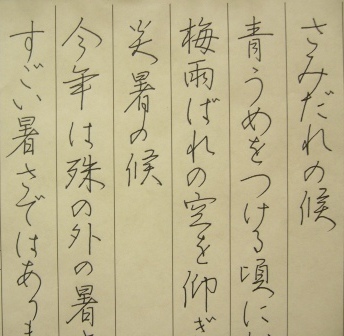 さみだれの候
青うめをつける頃に
梅雨ばれの空を仰ぎ
炎暑の候
今年は殊の外の暑さ
すごい暑さではあり